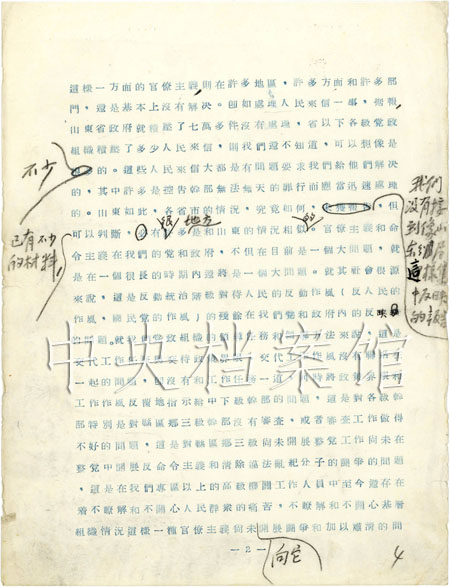 這樣一方面的官僚主義則在許多地區,許多方面和許多部
門,還是基本上沒有解決。即如處理人民來信一事,據報,
山東省政府就積壓了七萬多件沒有處理,省以下各級黨政
組織積壓了多少人民來信,則我們還不知道,可以想像是
不少
的。這些人民來信大都有問題要求我們給他們解決
的,其中許多是控告幹部無法無天的罪行而應當迅速處理
的。山東如此,各省市的情況,究竟如何,未獲報告,但
我們没有接到像山东分局這樣集中反映的報告
可以判斷,必有很多地方是和山東的情況相似。官僚主義和命
已有不少的材料
令主義在我們的黨和政府,不但在目前是一個大問題,就
是在一個很長的時期內還將是一個大問題。就其社會根源
來說,這是反動統治階級對待人民的反動作風(反人民的
作風,國民黨的作風)的殘餘在我們黨和政府內的反映
的問題。
交代工作任務與交代政策界限、交代工作作風沒有聯繫在
一起的問題,即沒有和工作任務一道,同時將政策界限和
工作作風反覆地指示給中下級幹部的問題。這是對各級幹
部特別是對縣區鄉三級幹部沒有審查,或者審查工作做得
不好的問題,這是對縣區鄉三級尚未開展整黨工作尚未在
整黨中開展反命令主義和清除違法亂紀分子的鬥爭的問題
,這是在我們專區以上的高級機關工作人員中至今還存在
着不瞭解和不關心人民群眾的痛苦,不瞭解和不關心基層
組織情況這樣一種官僚主義尚未開展鬥爭和加以肅清的問
向它
— 2 —
4
中央档案馆